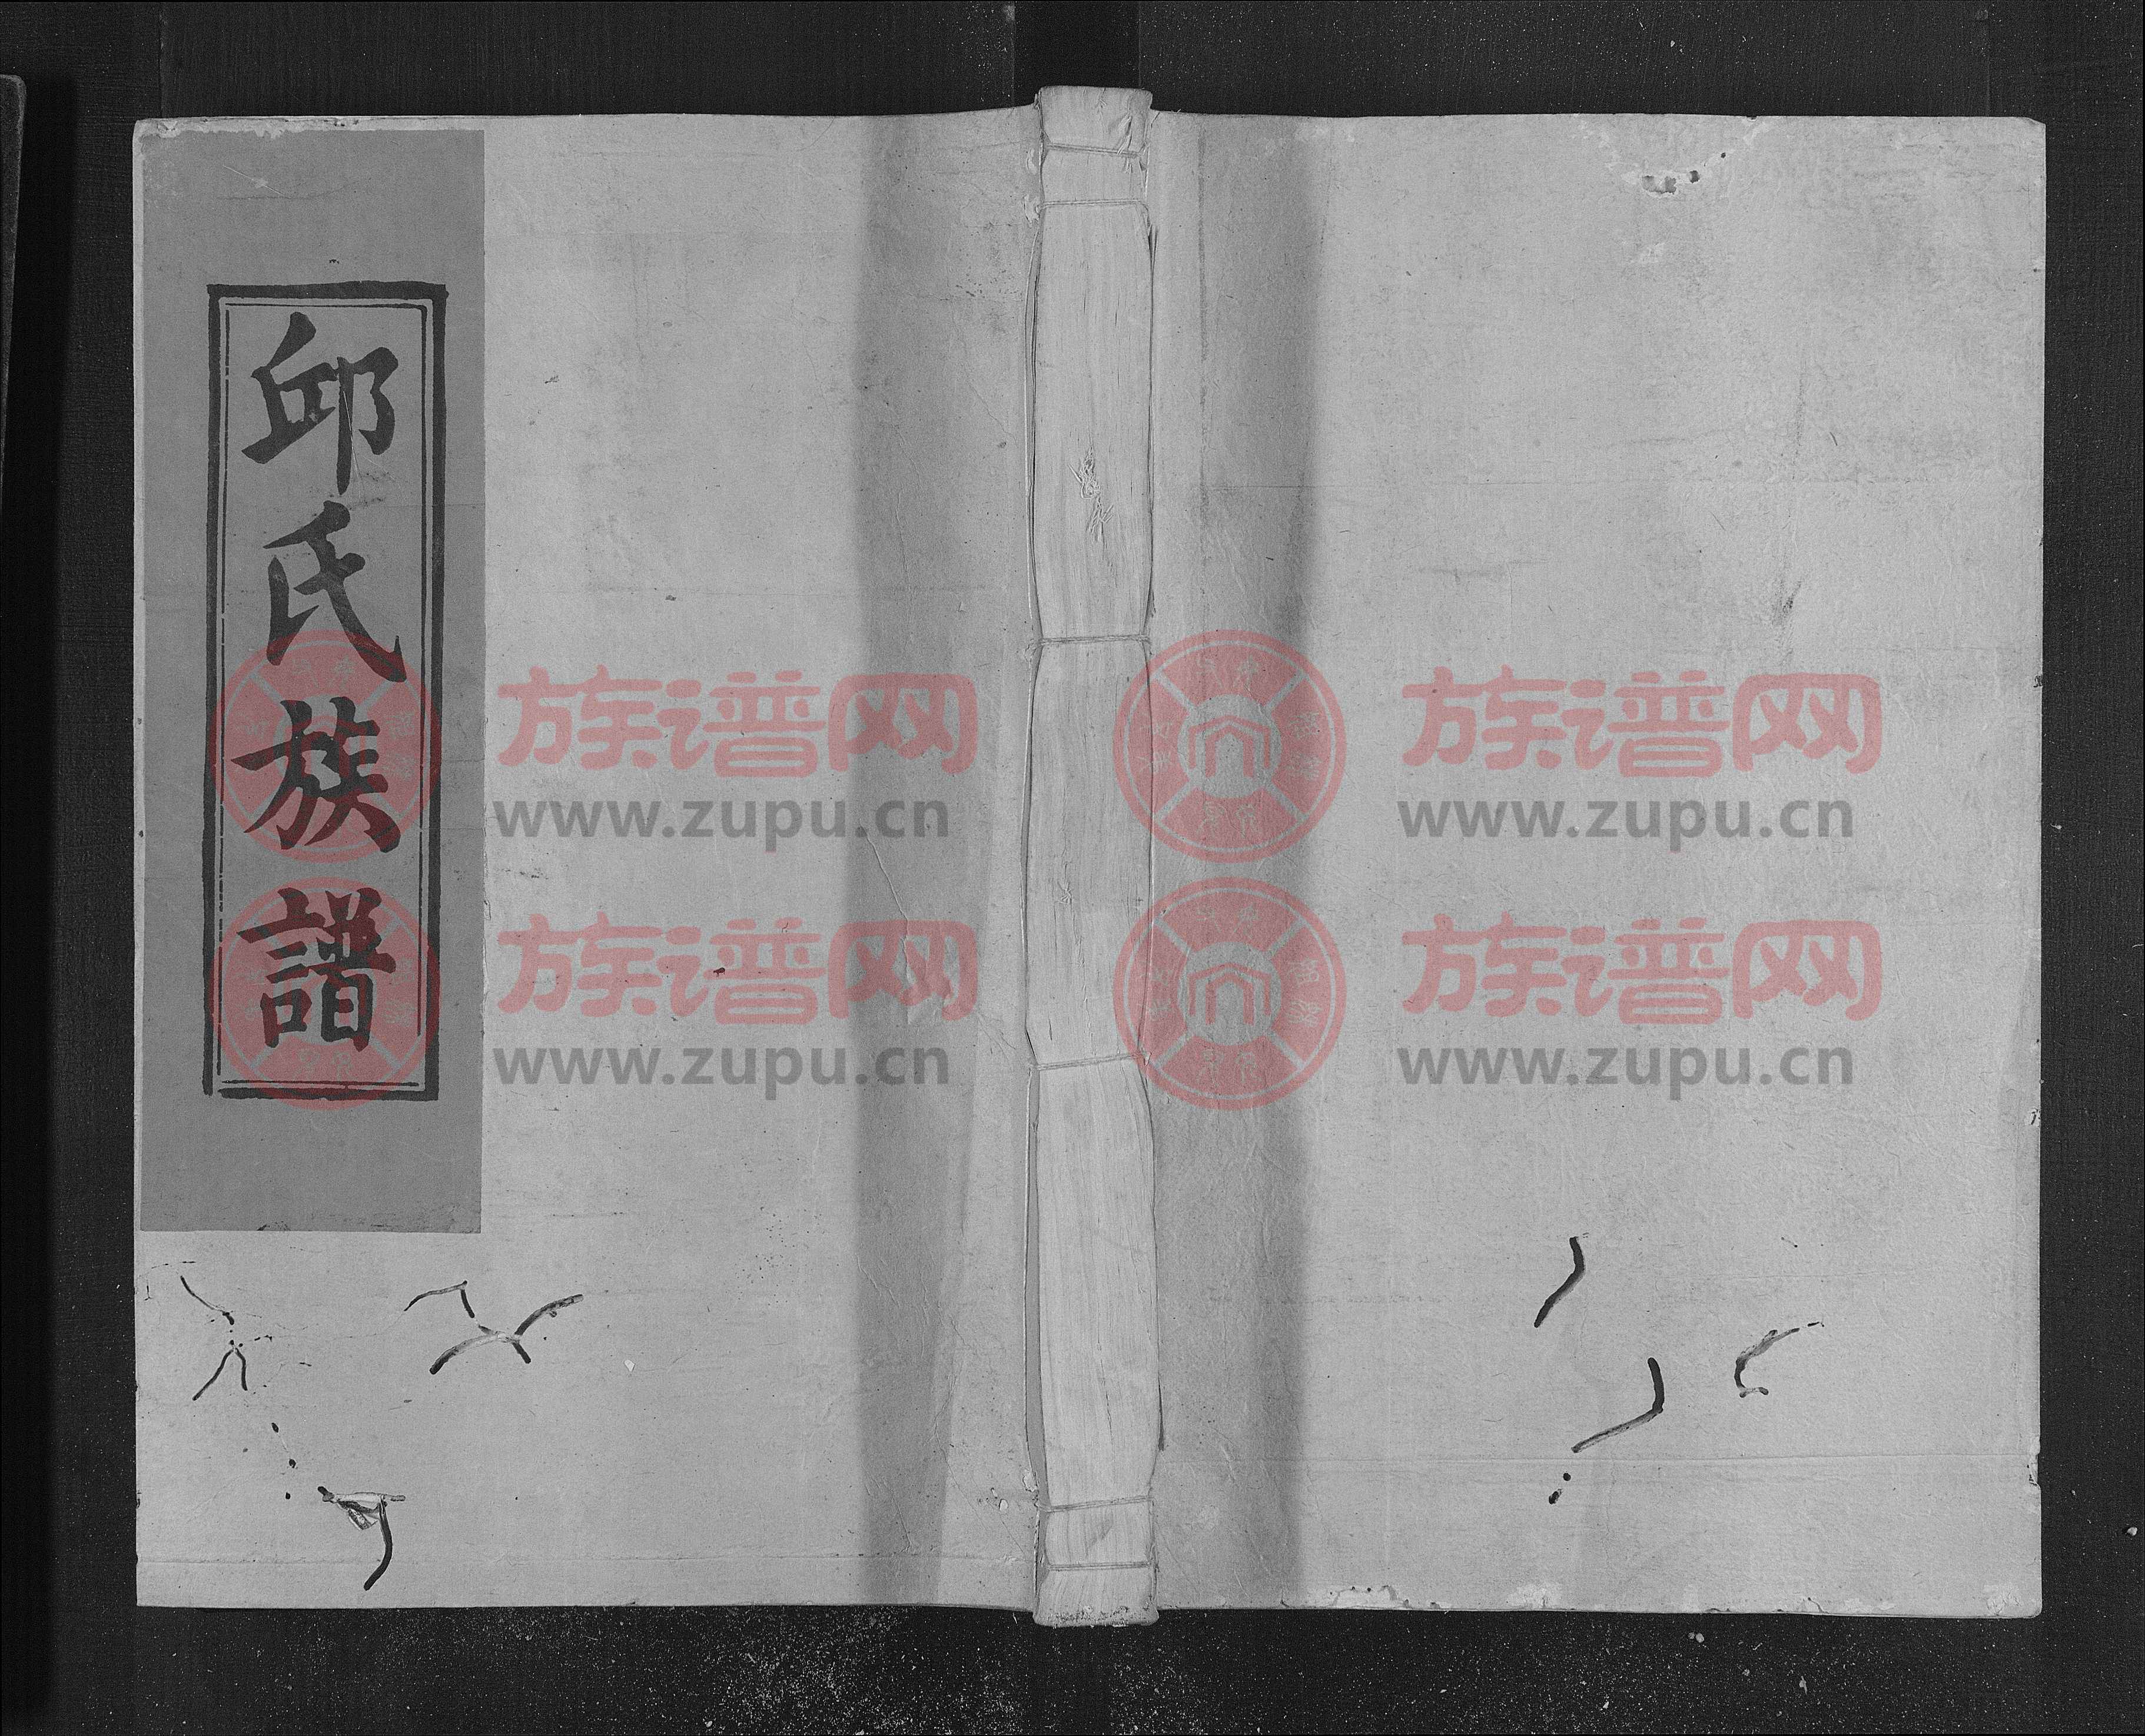 邱氏族譜
族谱网
www.zupu.cn
族谱网
www.zupu.cn
族谱网
www.zupu.cn
族谱网
www.zupu.cn